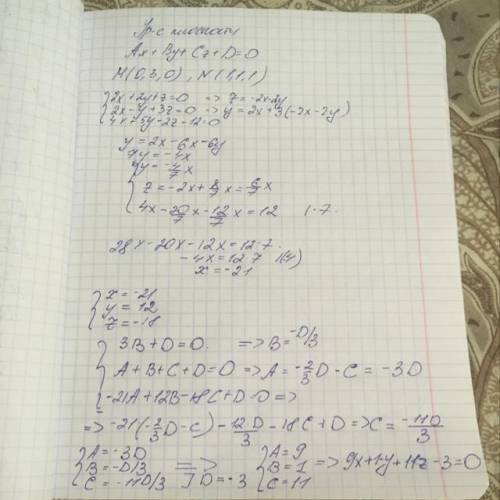 Ур-е плоскости
Ax+By+Cz+D=0
M(0,3,0), N(1,1,1)
{2x+2y+z=0 => z=-2x-2y
{2x-y+3z=0 => y=2x+3(-2x-2y)
{4x+5y-2z-12=0
y=2x-6x-6y
7y=-4x
y=-4/7x
{z=-2x+8/7x=6/7x
{4x-20/7x-12/7x=12 |·7
28x-20x-12x=12·7
-4x=12·7 |(4)
x=-21
{x=-21
{y=12
{z=-18
{3B+D=0. => B=-D/3
{A+B+C+D=0 => A=-2/3D-C=-3D
{-21A+12B-18C+D=0 =>
=> -21(-2/3D-C)-12D/3-18C+D => C=-11D/3
{A=-3D {A=9
{B=-D/3 => {B=1 => 9x+1y+11z-3=0
{C=-11D/3 D=-3 {C=11